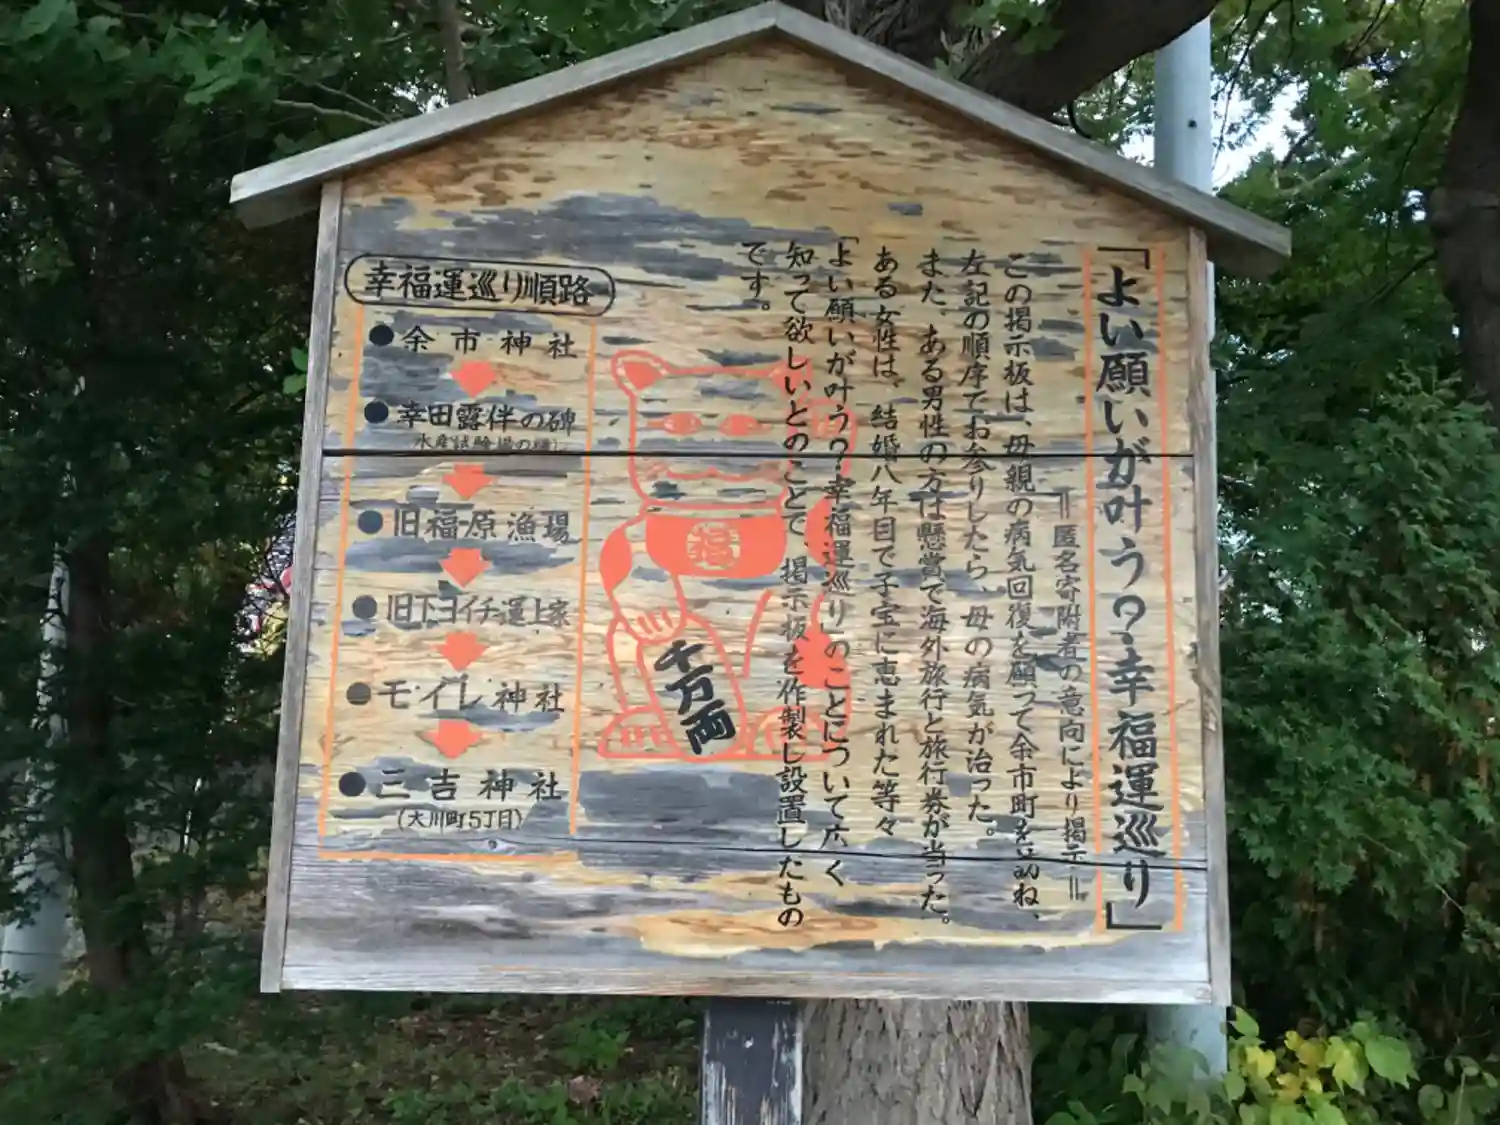 「よい願いが叶う?幸福運巡り」
=匿名寄附者の意向により掲示=
この掲示板は、母親の病気回復を願って余市町を訪ね、
左記の順序でお参りしたら、母の病気が治った。
また、ある男性の方は懸賞で海外旅行と旅行券が当った。
ある女性は、結婚八年目で子宝に恵まれた等々
「よい願いが叶う?幸福運巡り」のことについて広く
知って欲しいとのことで、掲示板を作製し設置したもの
です。
幸福運巡り順路
●余市神社
●幸田露伴の碑
水産試験場の
●旧福原漁場
●旧下ヨイチ運上家
●モイレ神社
●三吉神社
(大川町5丁目)
福
千万両